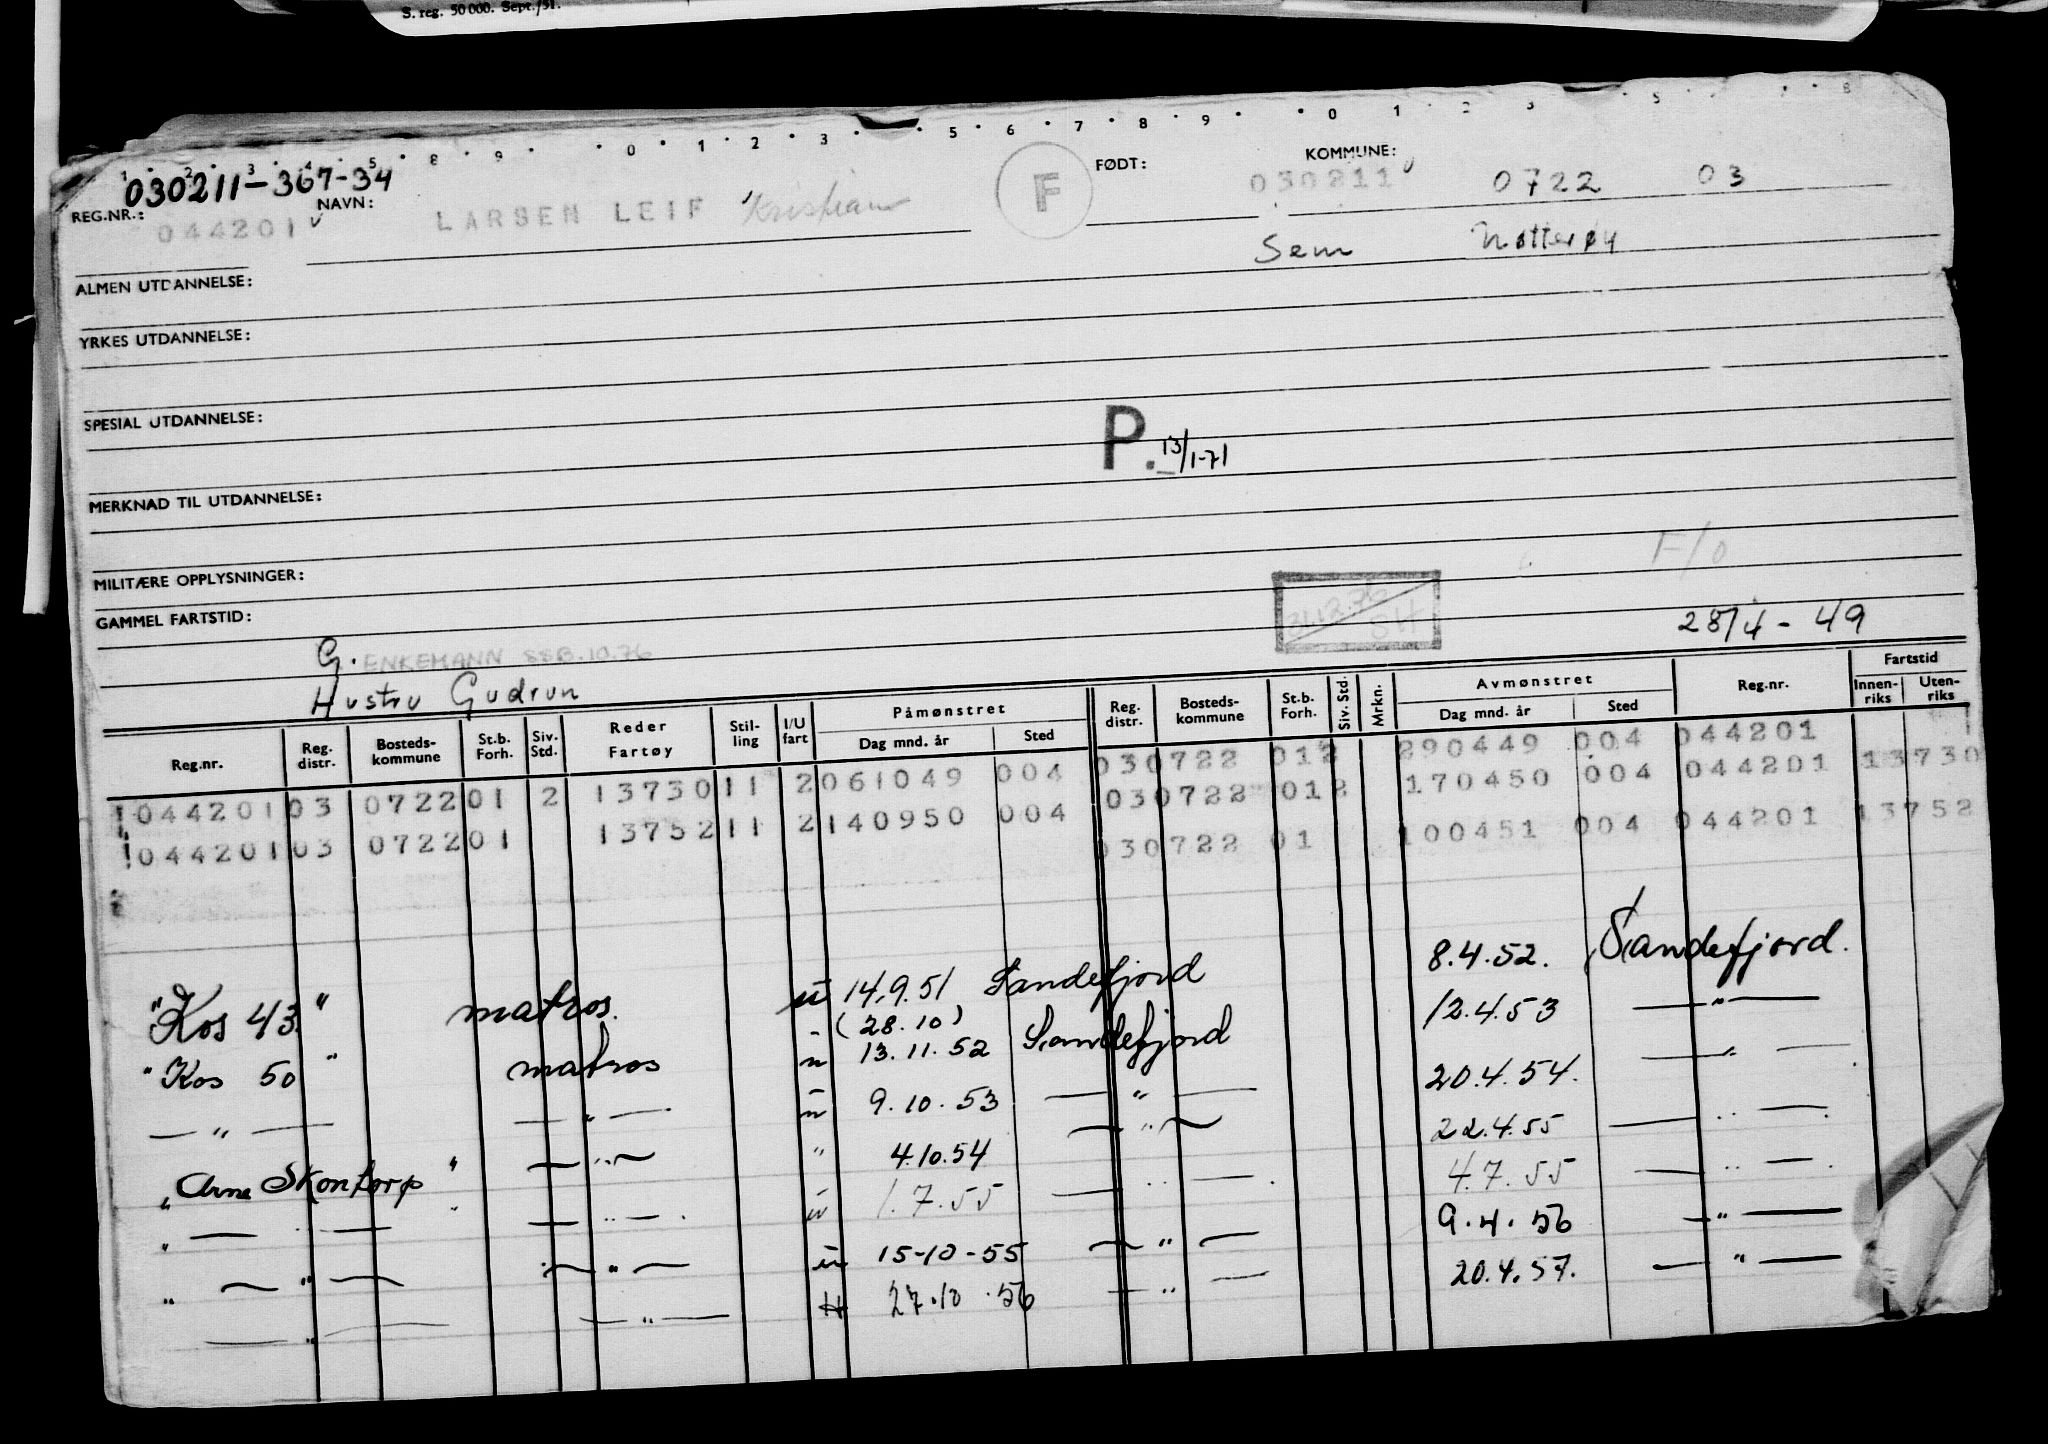 S. reg. 50 000. Sept./51.
1 2 3 4 5 8 9 0 1 2 3 5 6 7 8 9 0 1 2 3 5 8
030211-367-34
REG.NR.: 044201 NAVN: LARSEN LEIF Kristian F FØDT: 030211 KOMMUNE: 0722 03
Sem Nøtterøy
ALMEN UTDANNELSE:
YRKES UTDANNELSE:
SPESIAL UTDANNELSE:
P. 13/1-71
MERKNAD TIL UTDANNELSE:
MILITÆRE OPPLYSNINGER: F/o
GAMMEL FARTSTID: 31.12.76 SH 28/4 - 49
G. ENKEMANN SSB.10.76
Hustru Gudrun
Reg.nr. Reg. distr. Bosteds-kommune St.b. Forh. Siv. Std. Reder Fartøy Stil-ling I/U fart Påmønstret Dag mnd. år Sted Reg. distr. Bosteds-kommune St.b. Forh. Siv. Std. Mrkn. Avmønstret Dag mnd. år Sted Reg.nr. Fartstid Innen-riks Uten-riks
030722 012 290449 004 044201
044201 03 0722 01 2 13730 11 2 061049 004 030722 012 170450 004 044201 13730
044201 03 0722 01 13752 11 2 140950 004 030722 01 100451 004 044201 13752
"Kos 43" matros. u 14.9.51 Sandefjord 8.4.52. Sandefjord.
(28.10)
"Kos 50" matros u 13.11.52 Sandefjord 12.4.53 — " —
— " — — " — u 9.10.53 — " — 20.4.54. — " —
"Arne Skontorp" — " — " 4.10.54 — " — 22.4.55 — " —
" — " — " — " — u 1.7.55 — " — 4.7.55 — " —
" — " — — " — u 15-10-55 — " — 9.4.56 — " —
— " — — " — 27.10.56 — " — 20.4.57. — " —